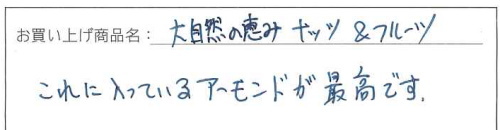 お買い上げ商品名: 大自然の恵み ナッツ &フルーツ
これに入っているアーモンドが最高です.